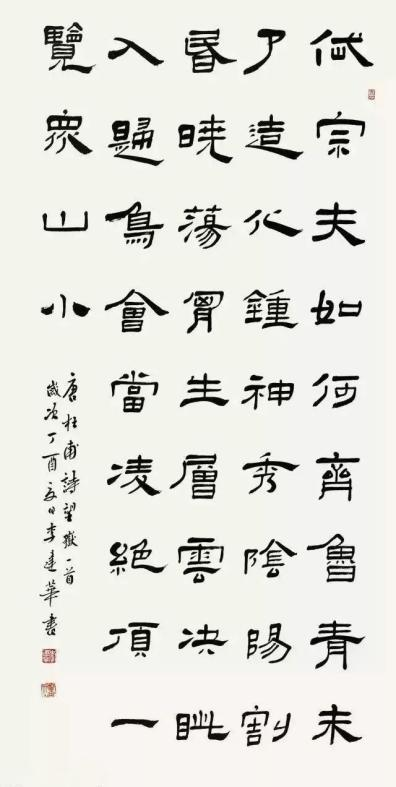 岱宗夫如何齊魯青未
了造化鍾神秀陰陽割
昬曉蕩胷生層雲决眦
入歸鳥會當凌絕頂一
覽眾山小
唐杜甫詩望嶽一首
歲次丁酉夏日李建華書